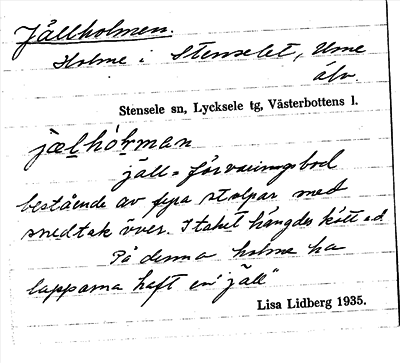 Jällholmen.
Holme i Stenselet, Ume
älv.
Stensele sn, Lycksele tg, Västerbottens l.
jällhól̥man
jäll = förvaringsbod
bestående av fyra stolpar med
snedtak över. I taket hängdes kött o.d.
På denna holme ha
lapparna haft en "jäll"
Lisa Lidberg 1935.